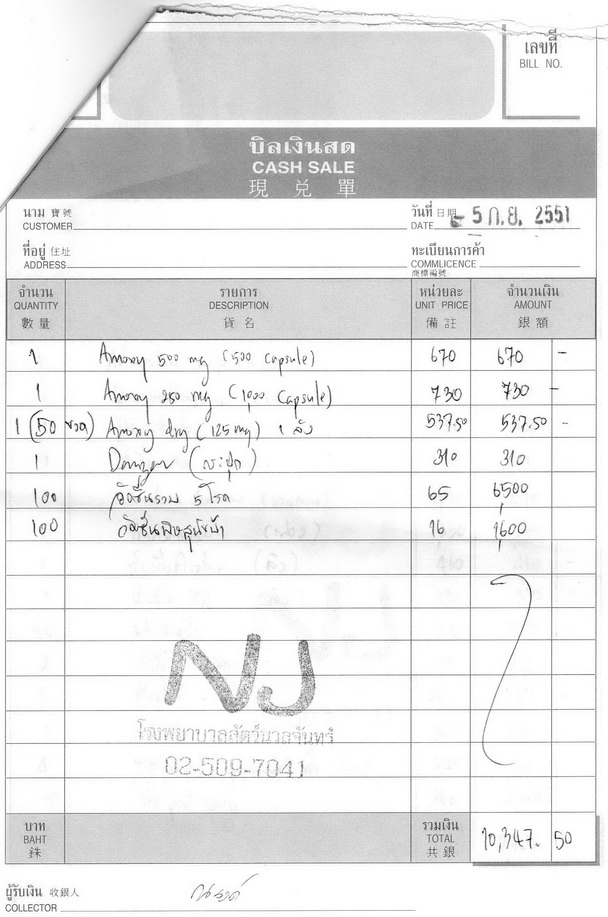 เลขที่
BILL NO.
บิลเงินสด
CASH SALE
現兌單
นาม 寶號
CUSTOMER
วันที่ 日期
DATE
- 5 ก.ย. 2551
ที่อยู่ 住址
ADDRESS
ทะเบียนการค้า
COMMLICENCE
商標編號
จำนวน รายการ หน่วยละ จำนวนเงิน
QUANTITY DESCRIPTION UNIT PRICE AMOUNT
數量 貨名 備註 銀額
1 Amoxy 500 mg (500 capsule) 670 670 -
1 Amoxy 250 mg (1,000 capsule) 730 730 -
1 (50 ขวด) Amoxy dry (125 mg) 1 ลัง 537.50 537.50 -
1 (กระปุก) 310 310
100 วัคซีนรวม 5 โรค 65 6,500
100 วัคซีนพิษสุนัขบ้า 16 1,600
NJ
โรงพยาบาลสัตว์นวลจันทร์
02-509-7041
บาท รวมเงิน
BAHT TOTAL 10,347. 50
銖 共銀
ผู้รับเงิน 收銀人
COLLECTOR